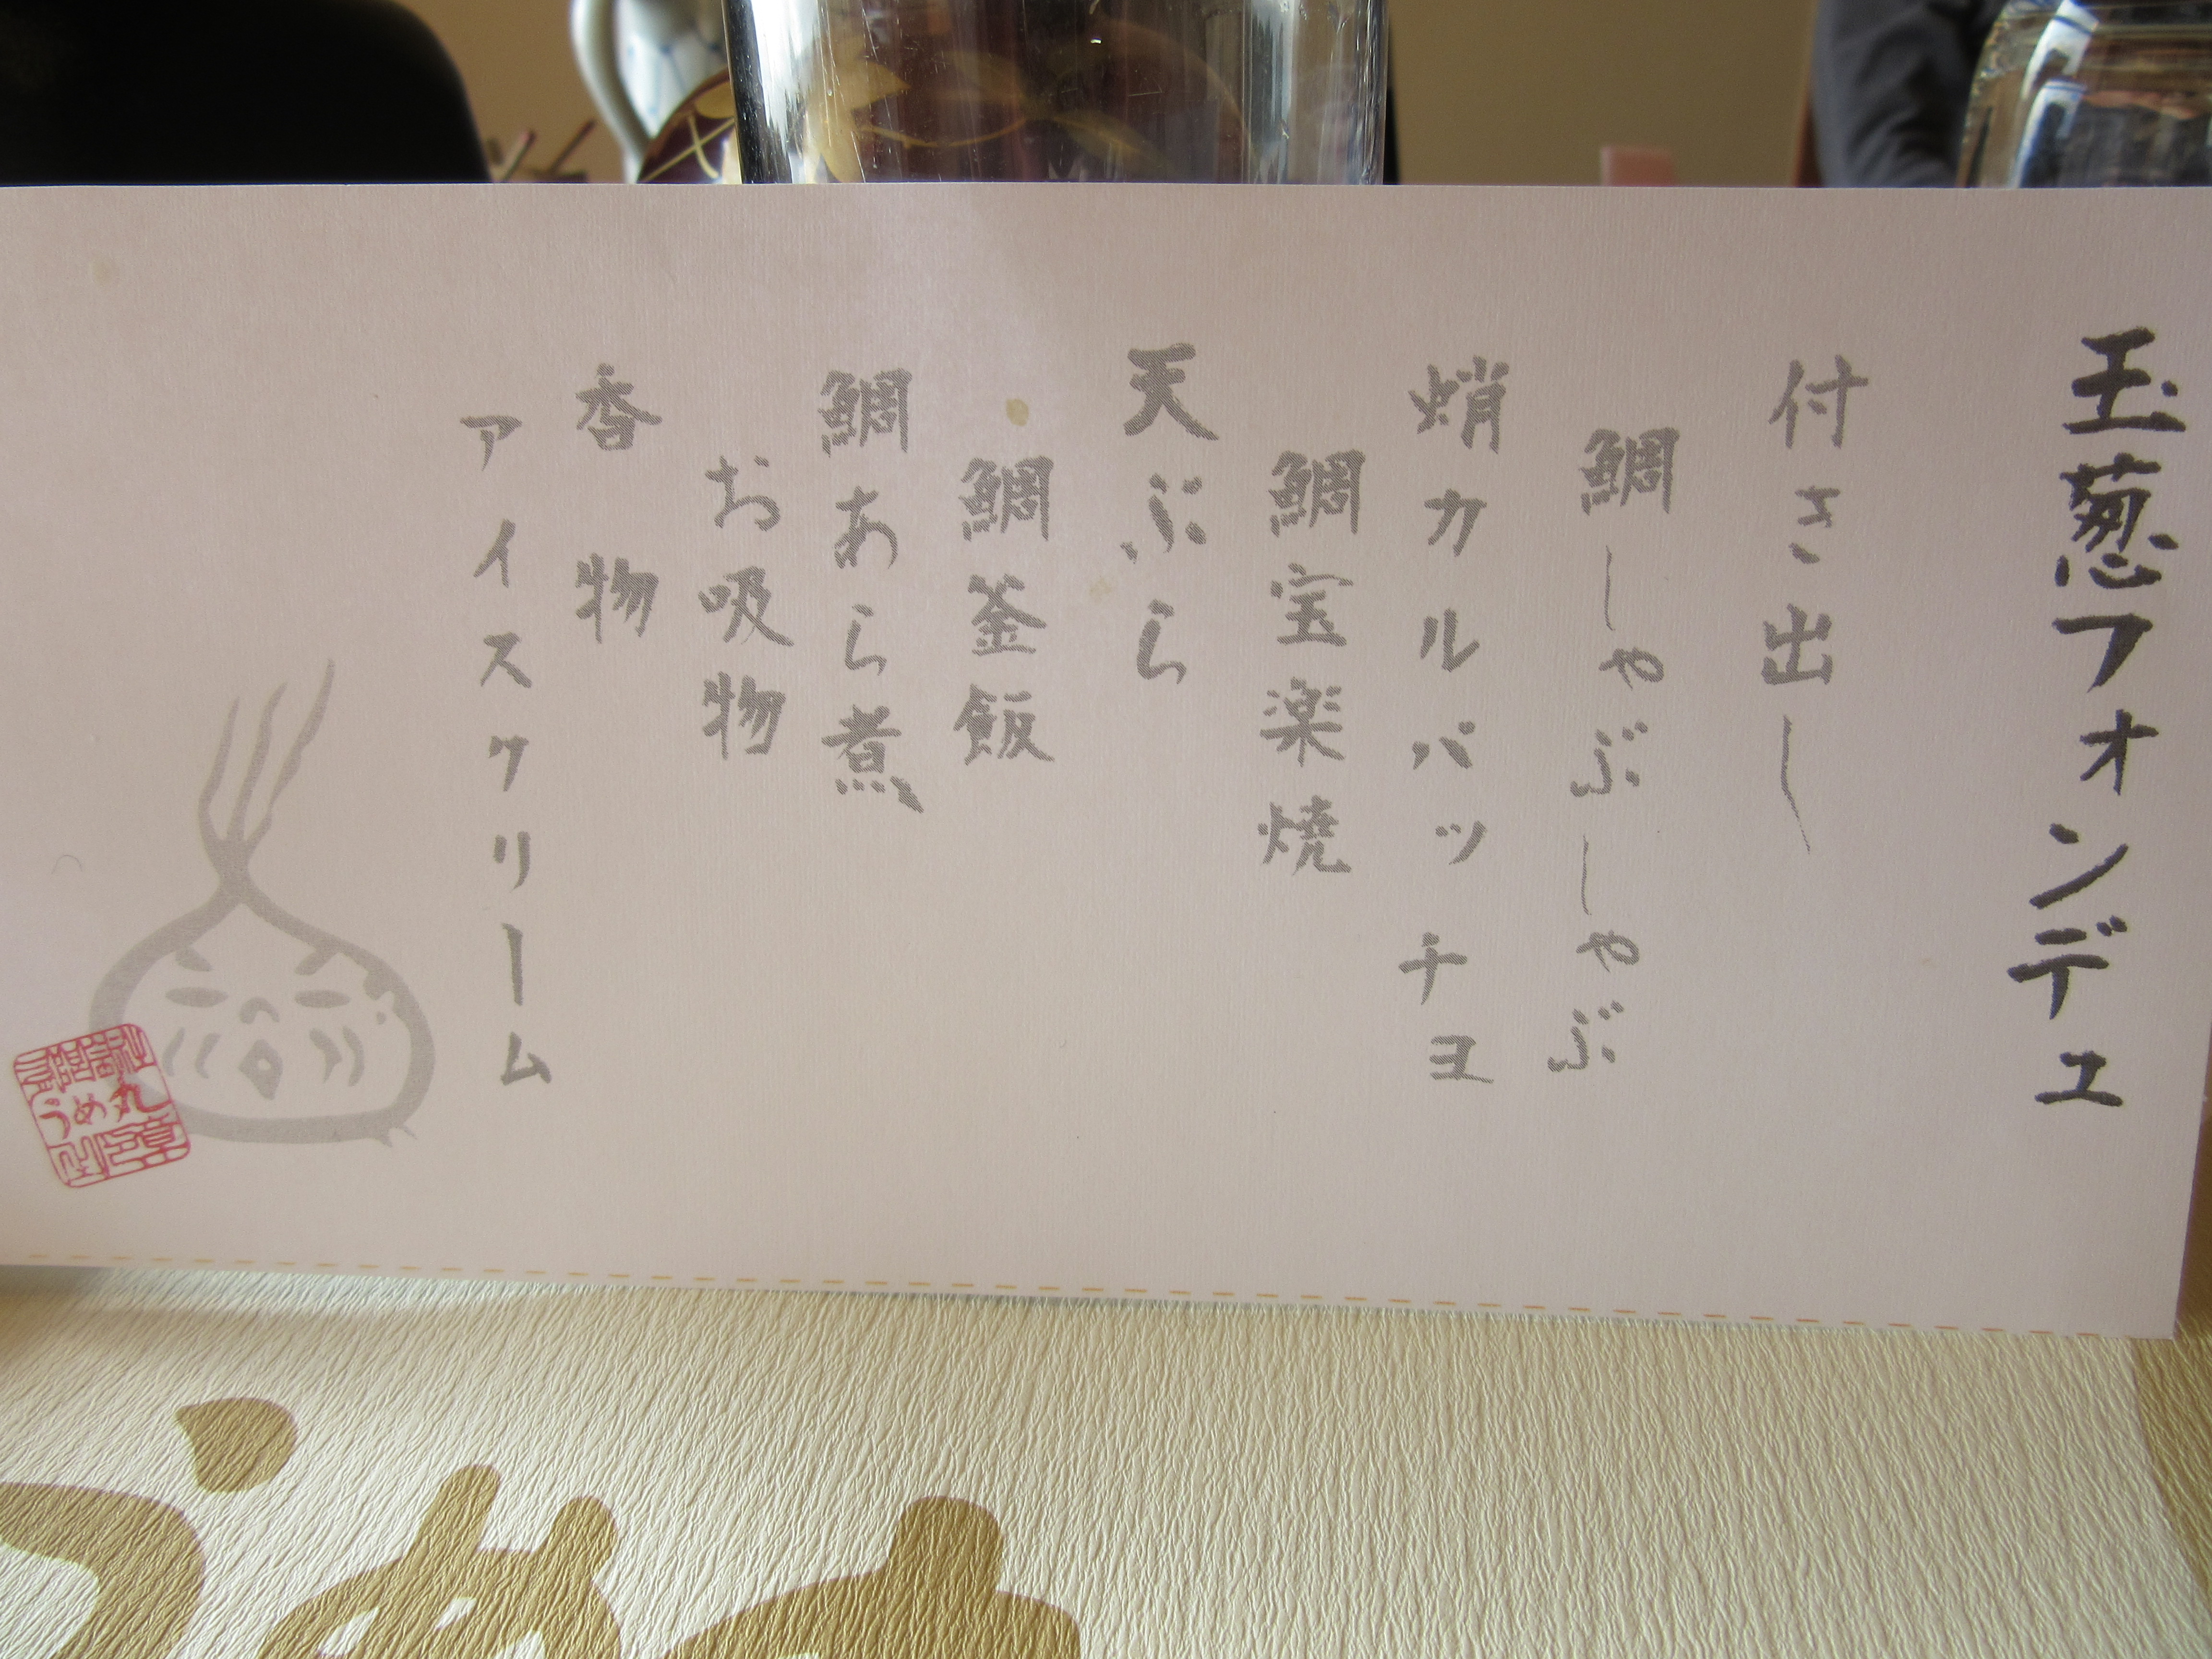 玉葱フォンデュ
付き出し
鯛しゃぶしゃぶ
蛸カルパッチョ
鯛宝楽焼
天ぷら
鯛釜飯
鯛あら煮
お吸物
香物
アイスクリーム
丸
うめ